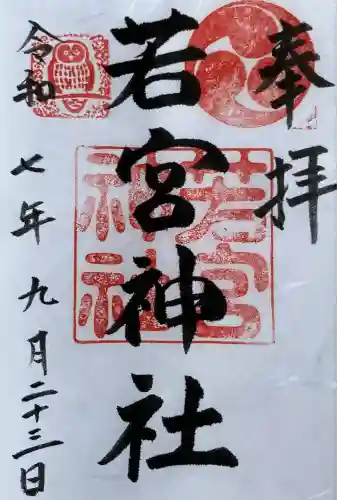 奉拝
若宮神社
令和七年九月二十三日
若宮
神社